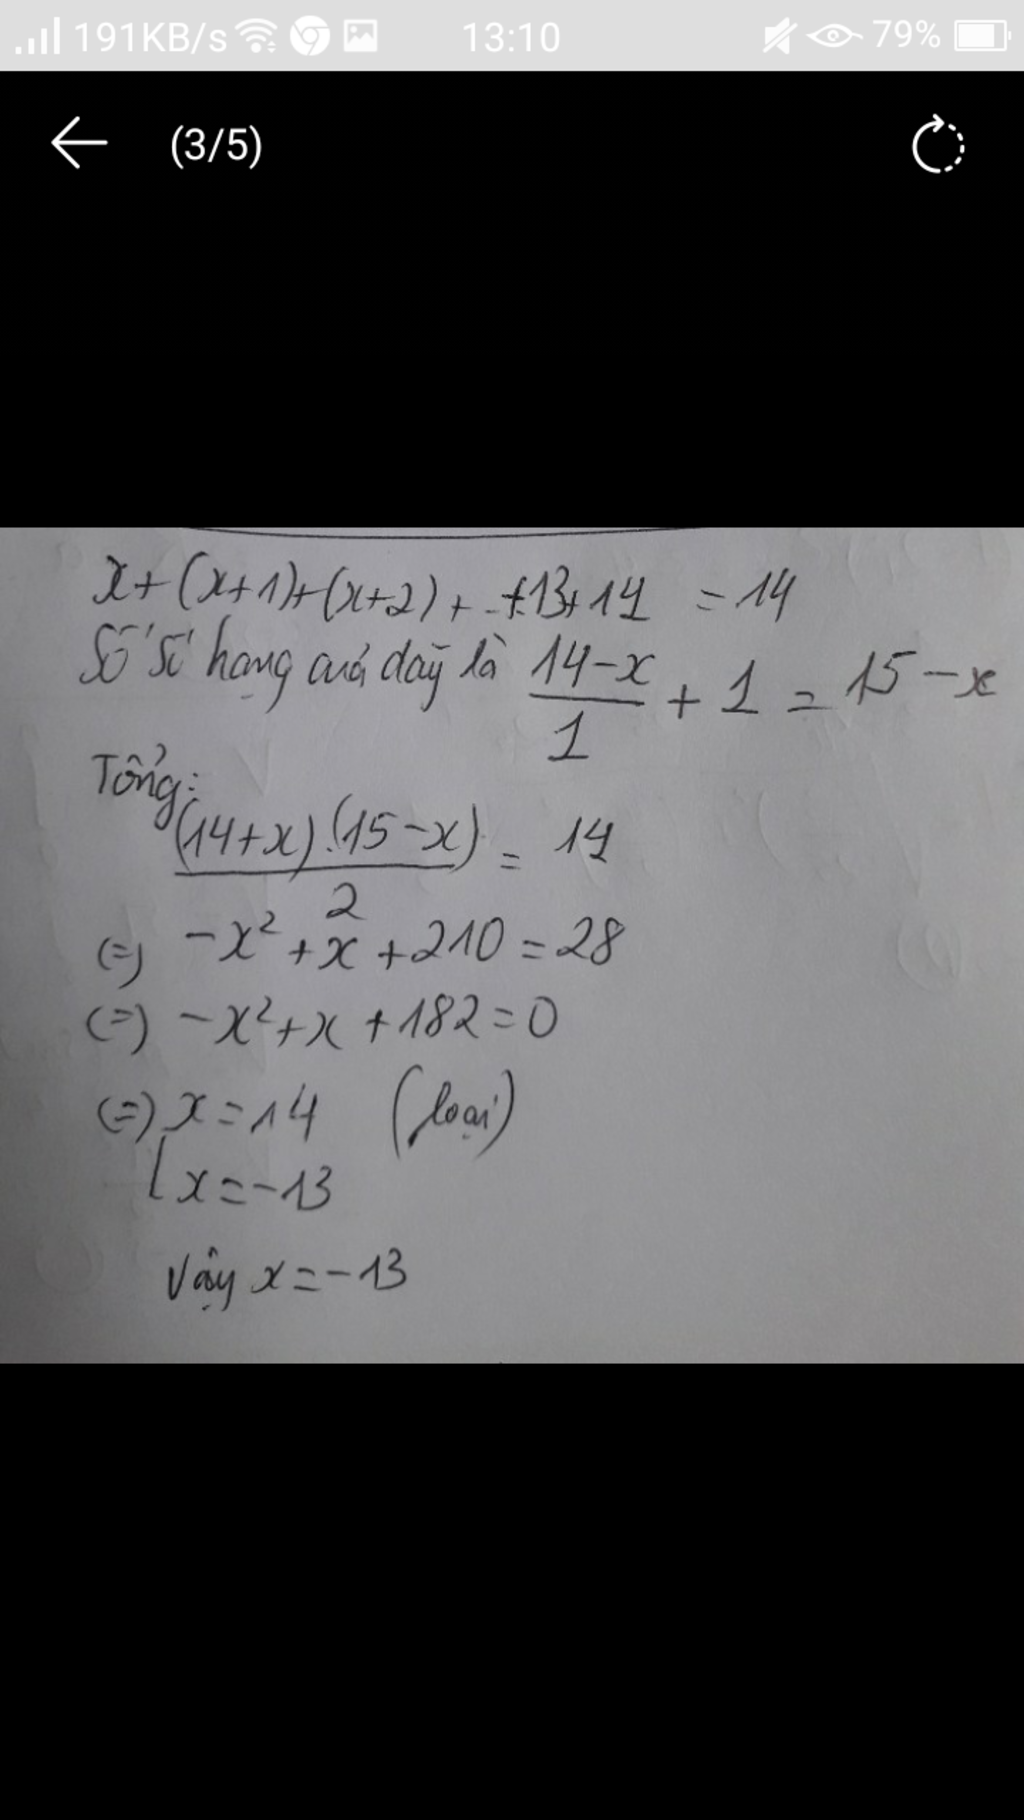 191KB/s 13:10 79%
(3/5)
x+(x+1)+(x+2)+..+13+14 = 14
Số số hạng của dãy là (14-x)/1 + 1 = 15-x
Tổng:
(14+x).(15-x)/2 = 14
(=) -x²+x+210=28
(=) -x²+x+182=0
(=) [x=14 (loại)
x=-13
Vậy x=-13